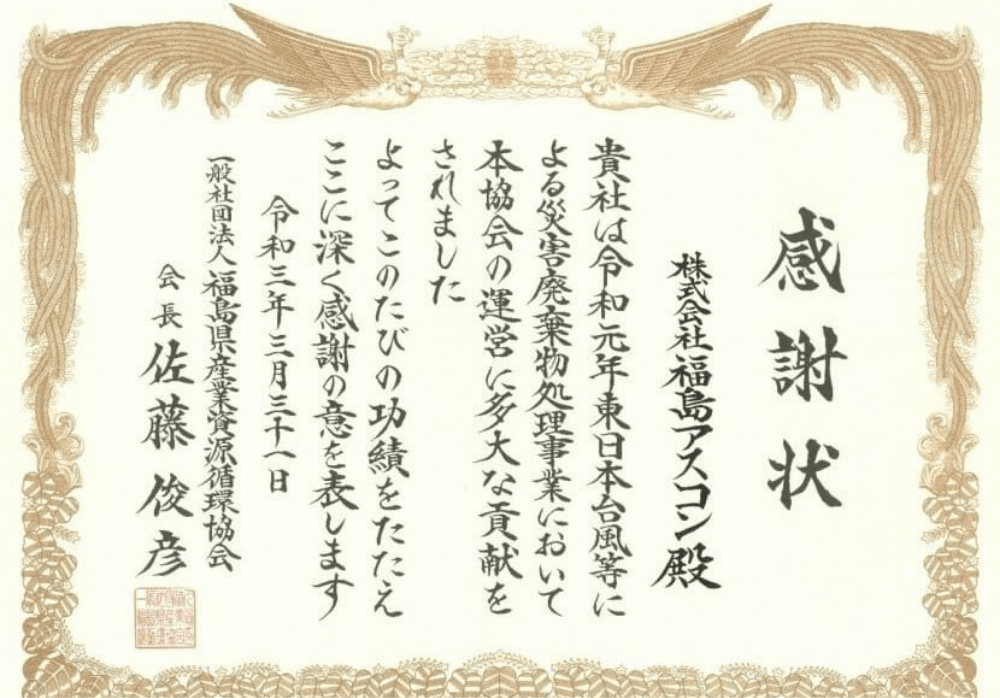 感謝状
株式会社福島アスコン殿
貴社は令和元年東日本台風等に
よる災害廃棄物処理事業において
本協会の運営に多大な貢献を
されました
よってこのたびの功績をたたえ
ここに深く感謝の意を表します
令和三年三月三十一日
一般社団法人福島県産業資源循環協会
会長佐藤俊彦